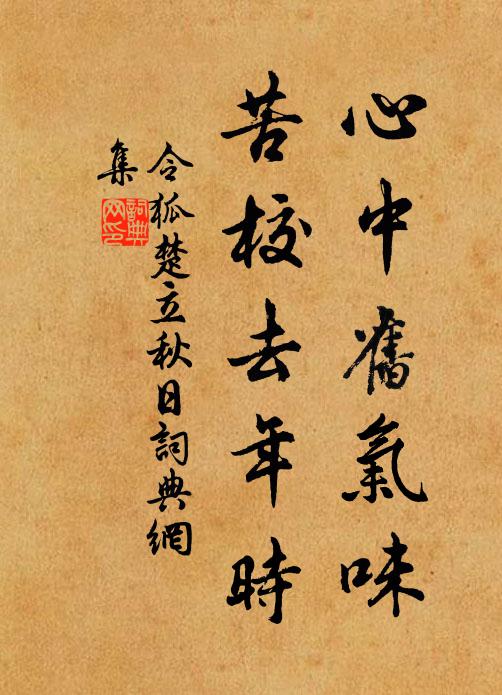 心中舊氣味
苦校去年時
令狐楚立秋日詞典網
集
詞典網印